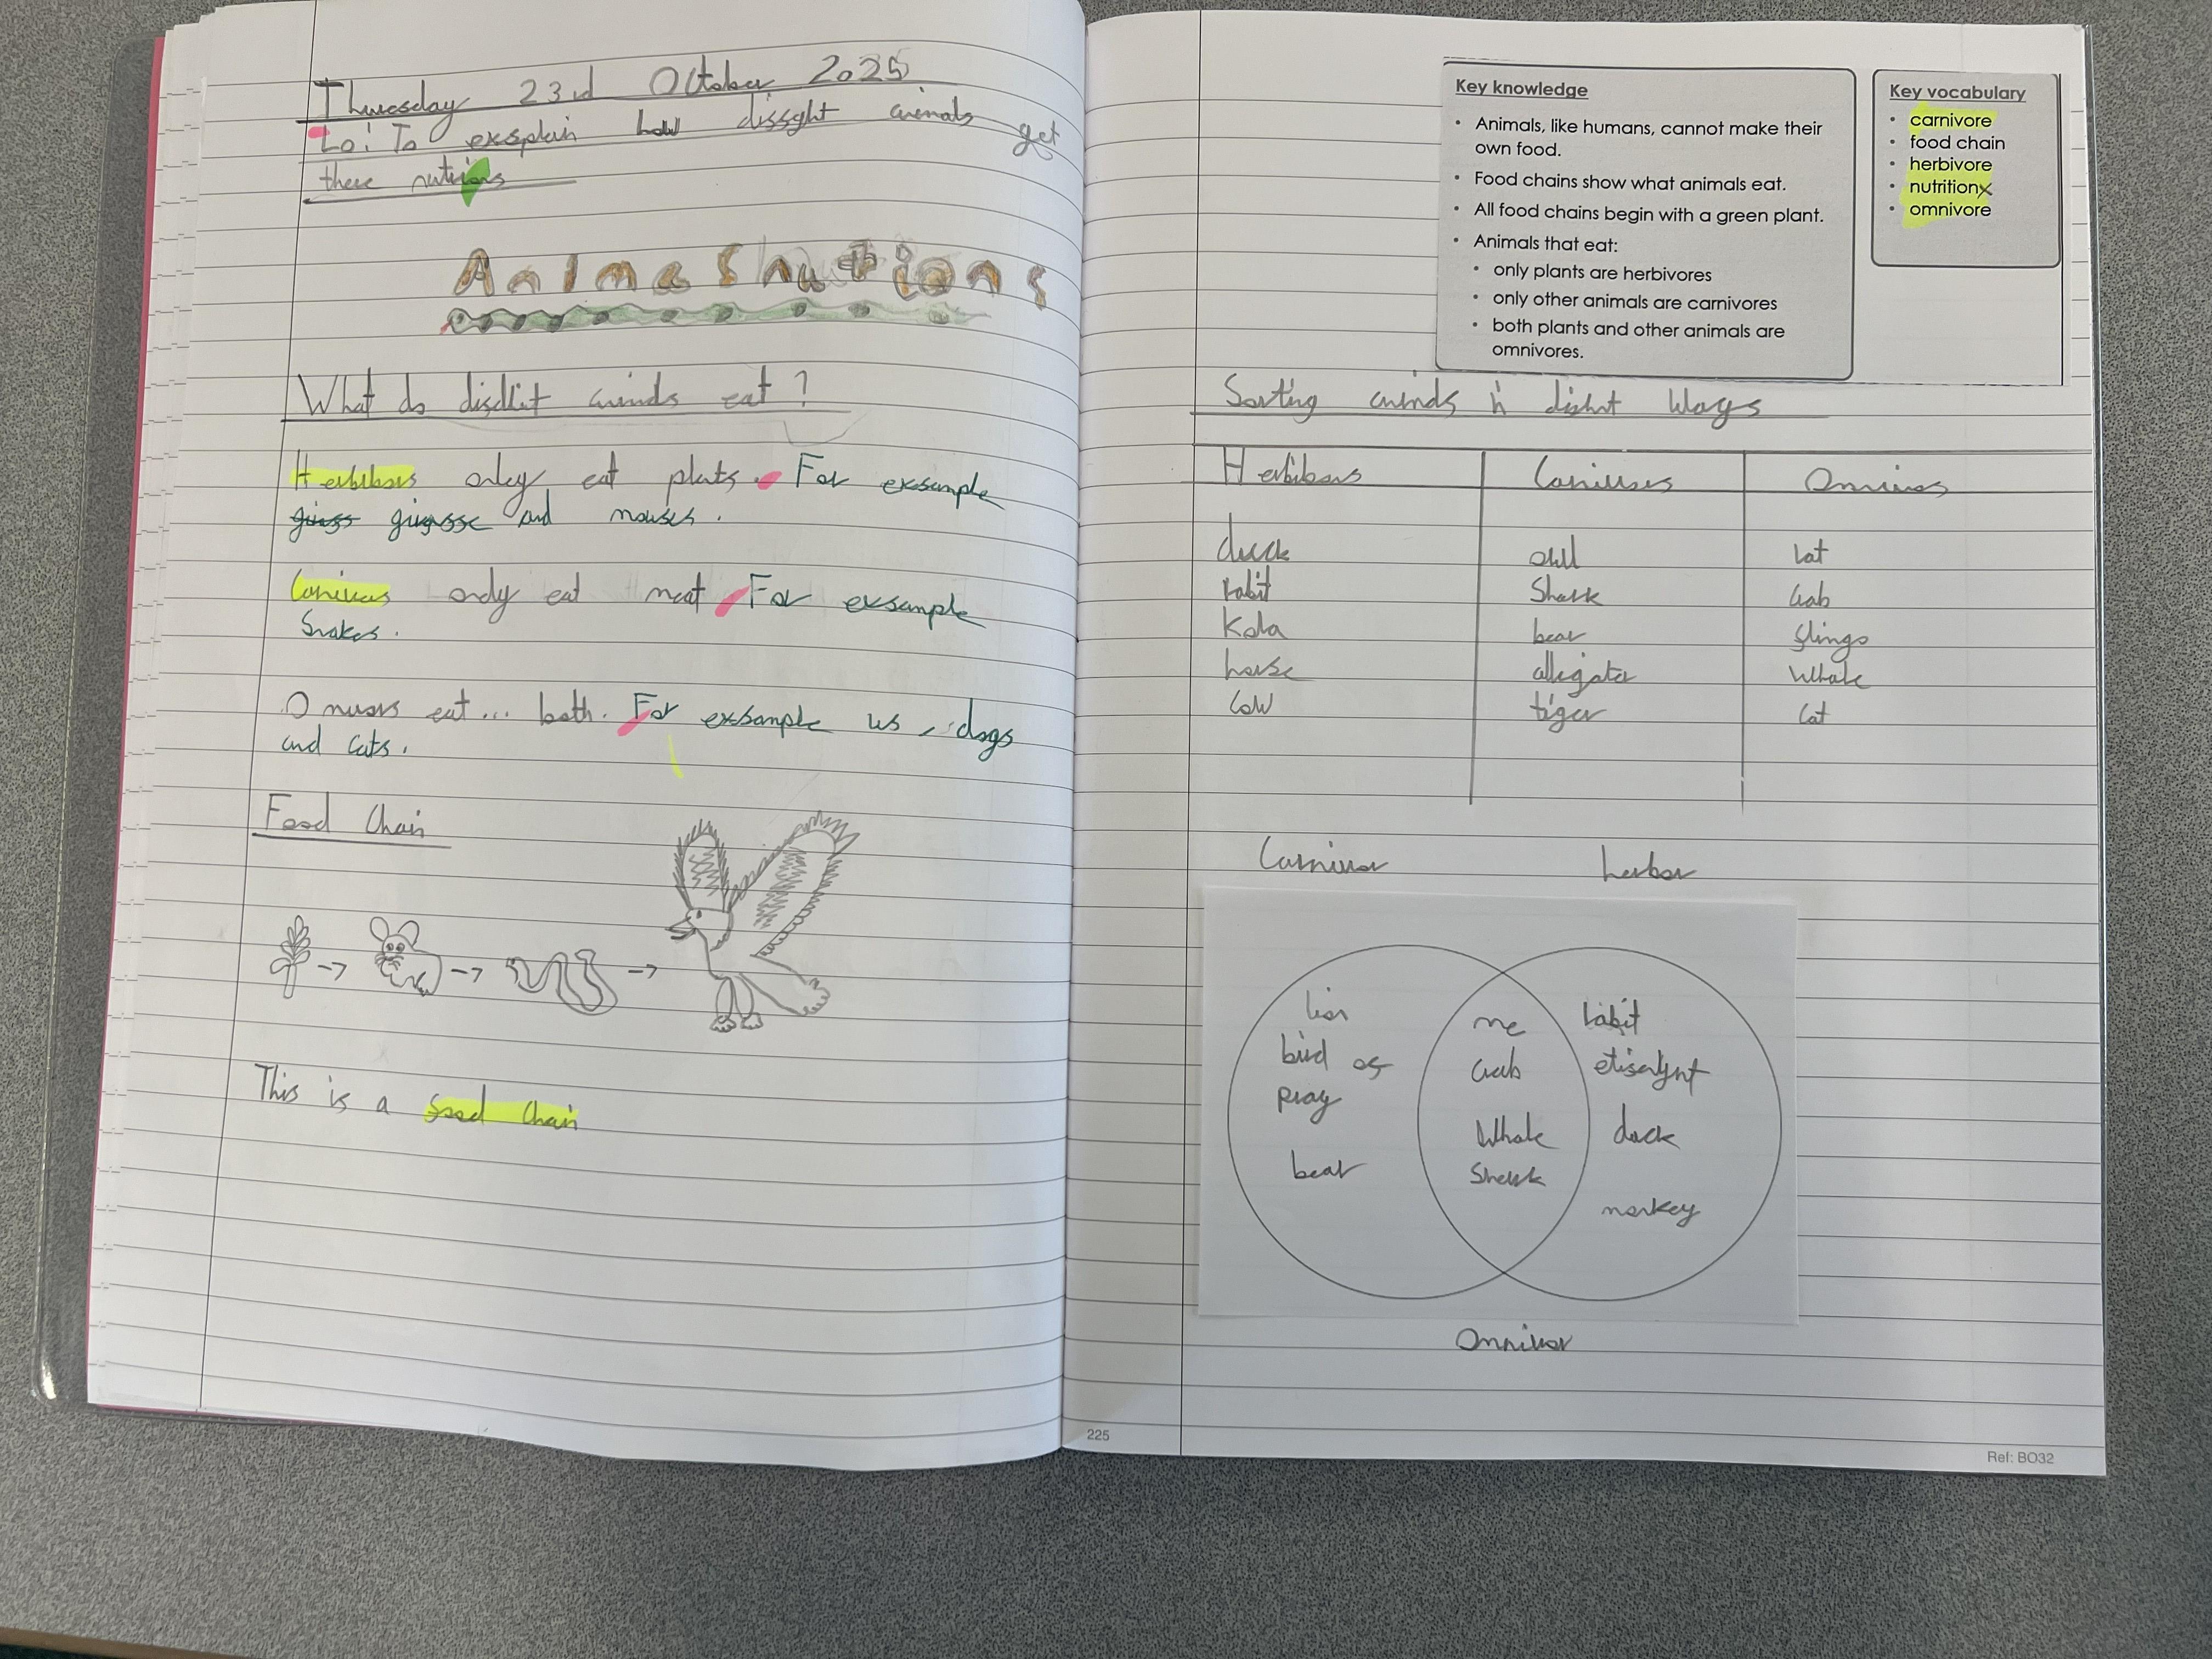 Thuresday 23rd October 2025
Lo: To exsplain how dissght animals get
there nutrions
Animas nutions
What do disdlit animds eat?
Herbibors only eat plats. For exsample
girasse and mouses.
Canivors only eat meat For exsample
Snakes.
Omnivors eat... both. For exsample us, dogs
and cats.
Food Chain
This is a food chain
Key knowledge
• Animals, like humans, cannot make their
own food.
• Food chains show what animals eat.
• All food chains begin with a green plant.
• Animals that eat:
• only plants are herbivores
• only other animals are carnivores
• both plants and other animals are
omnivores.
Key vocabulary
• carnivore
• food chain
• herbivore
• nutrition
• omnivore
Sorting in Ways
Herbibors
duck
rabit
Kola
horse
cow
shark
bear
allegater
tiger
crab
flingo
whale
cat
Carnivor
herbor
lion
bird of
pray
bear
me
crab
Whale
Shark
rabit
duck
monkey
Omnivor
225
Ref: BO32